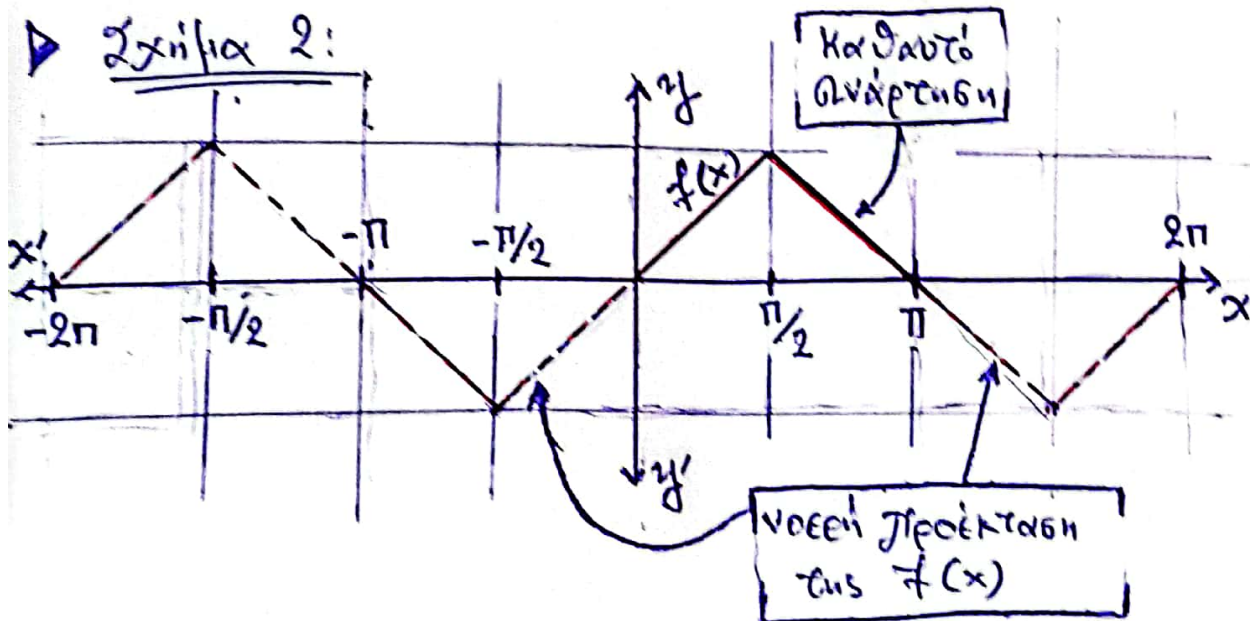 Σχήμα 2:
καθαυτό
συνάρτηση
y
f(x)
x'
-π
-π/2
2π
-2π
-π/2
π/2
π
x
y'
νοερή προέκταση
της f(x)